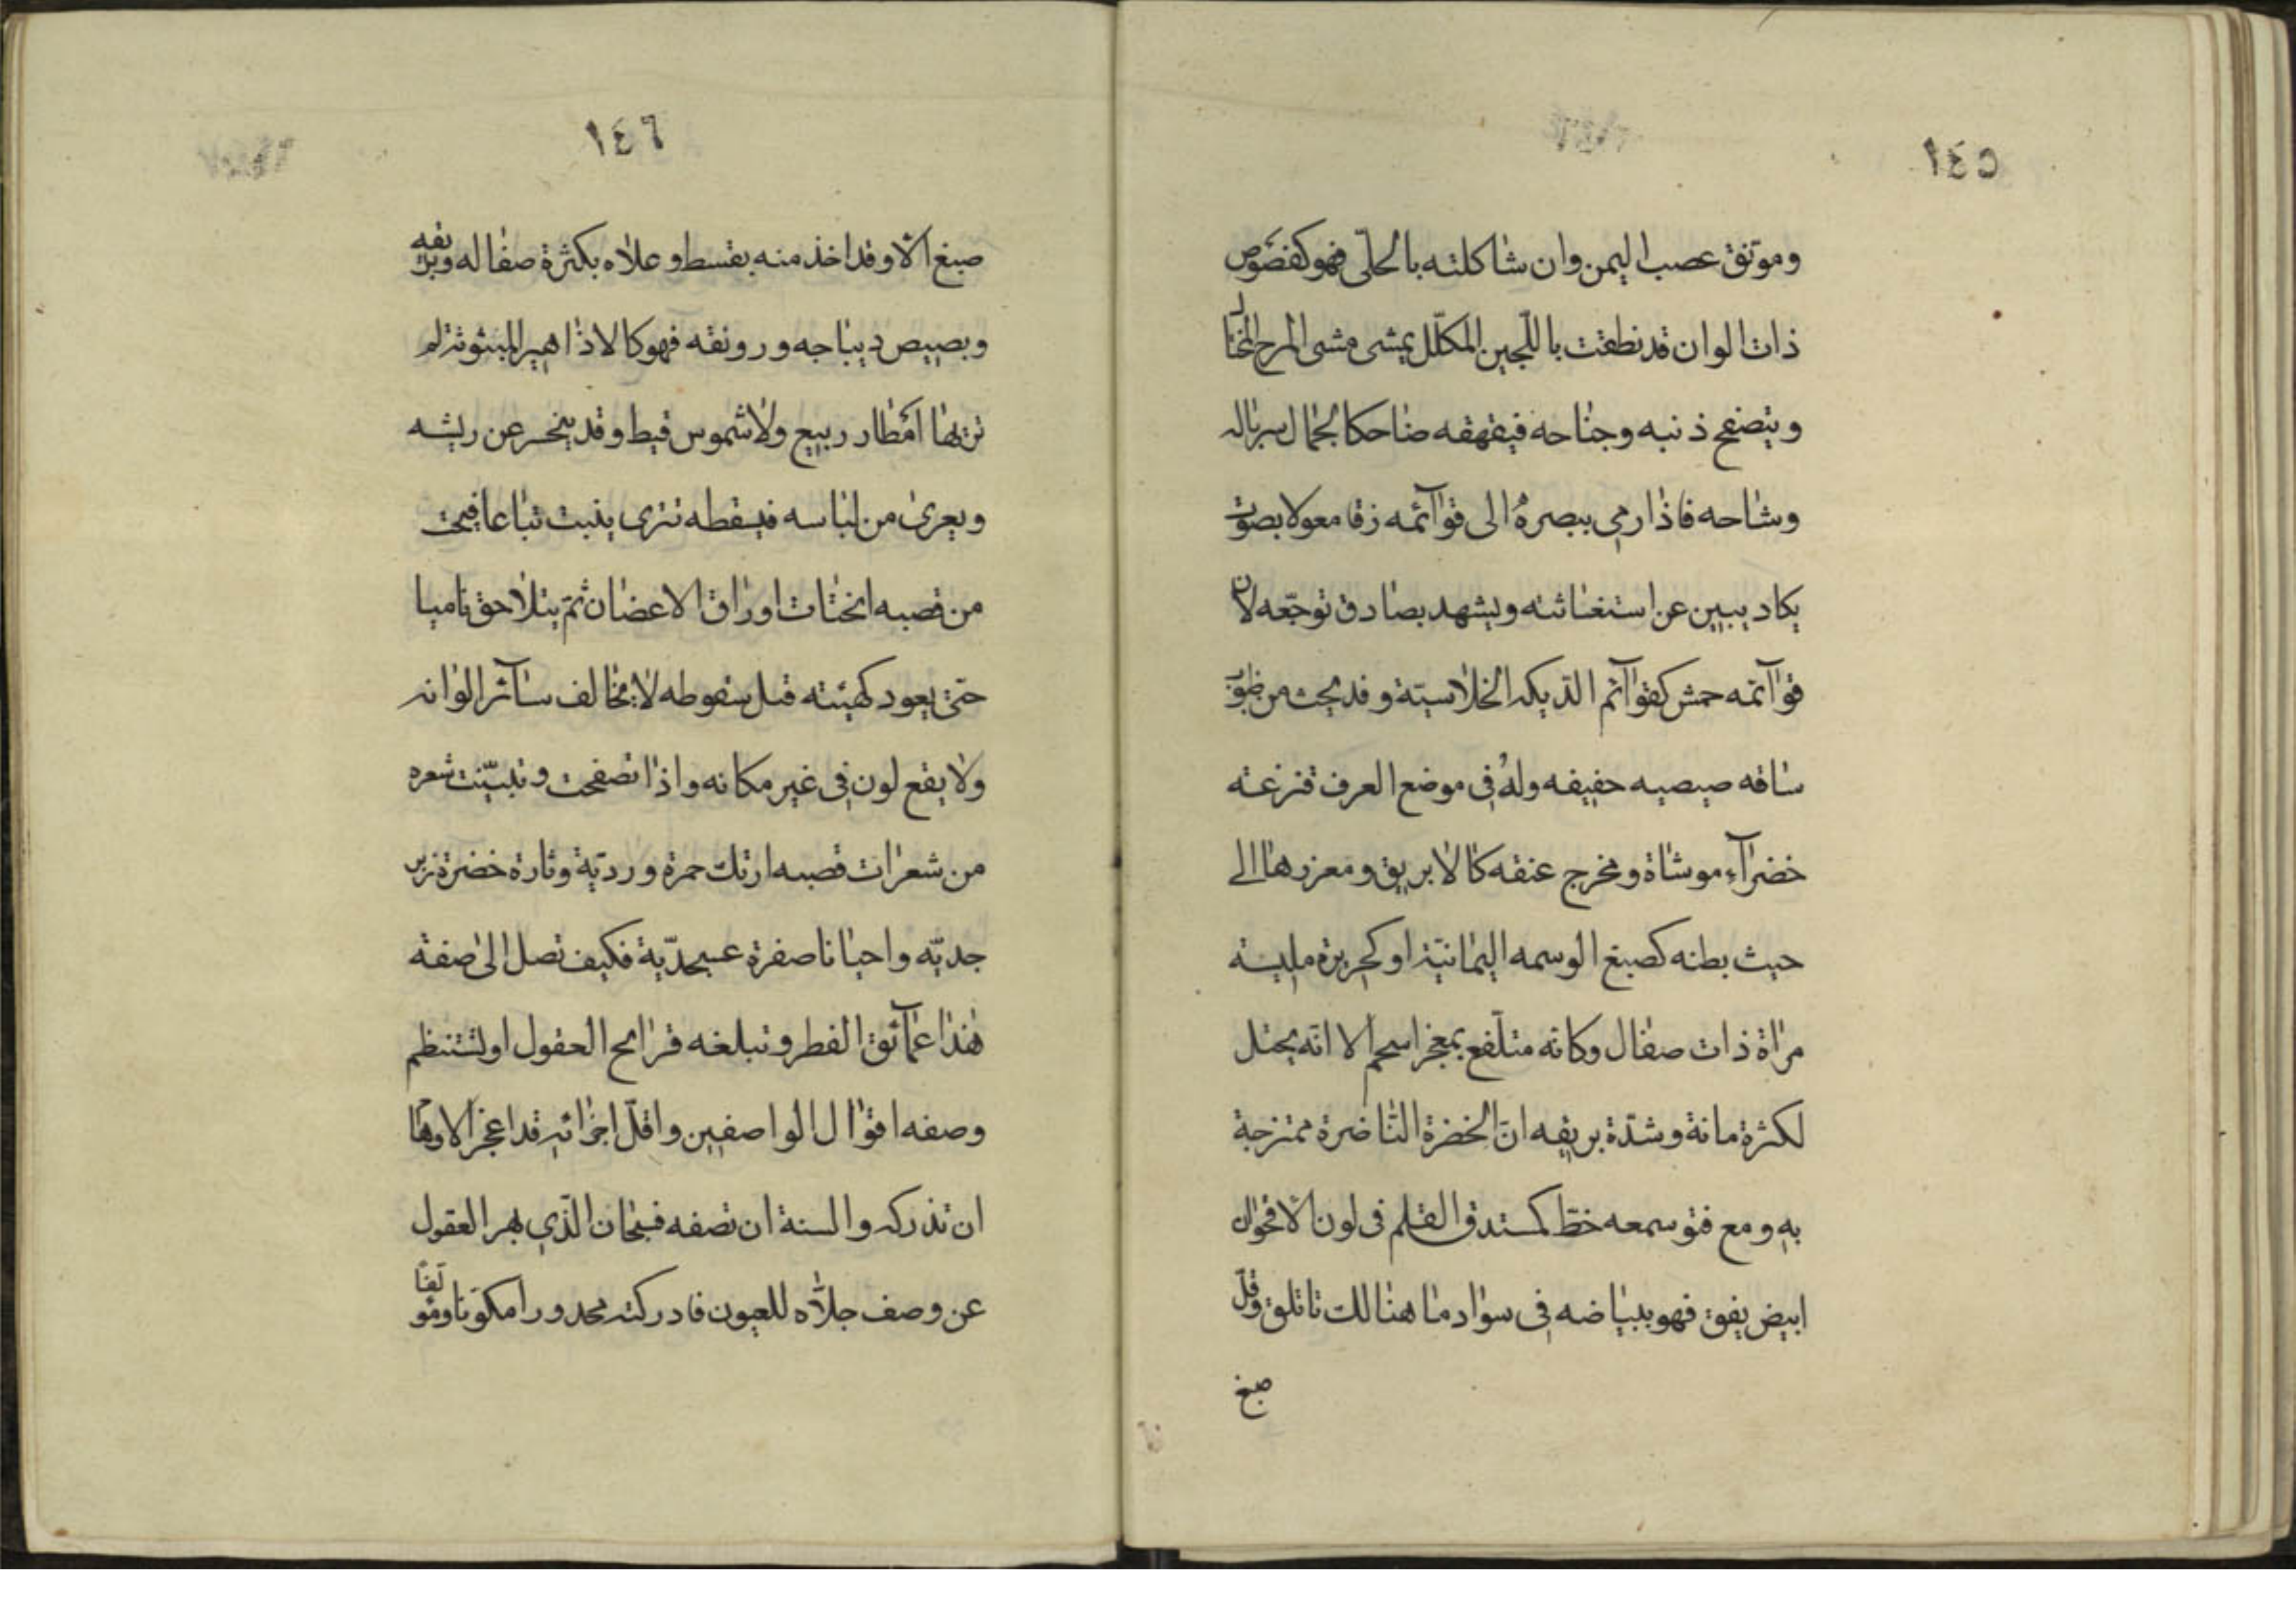 ١٤٥
وموتفق عصب اليمن وان شاكلته بالحلّى فهو كفصوص
ذات الوان قد نطقت باللّجين المكلّل يمشى مشى المرح المختال
ويتصفح ذنبه وجناحه فيقهقه ضاحكا لجمال سرباله
وشاحه فاذا رمى ببصره الى قوآئمه زقا معولا بصوت
يكاد يبين عن استغاثته ويشهد بصادق توجّعه لان
قوآئمه حمش كقوآئم الدّيكه الخلاسيّة وقد نجث من ظنبوب
ساقه صيصيه حفيفه وله فى موضع العرف قنزعته
خضرآء موشاة ومخرج عنقه كالابريق ومغرزها الى
حيث بطنه كصبغ الوسمه اليمانيّة او كحريرة مليسة
مراة ذات صقال وكانه متلّفع بمعجر اسحم الا انّه يختل
لكثرة مانة وشدّة بريقه انّ الخضرة النّاضرة ممتزجة
به ومع فتو سمعه خطّ كمستدق القلم فى لون الاقحوان
ابيض يقق فهو ببياضه فى سواد ما هنالك تاتلق وقلّ
صبغ
١٤٦
صبغ الا وقد اخذ منه بقسط وعلاه بكثرة صقاله وبريقه
وبصيص ديباجه ورونقه فهو كالاذاهير المبثوثة لم
تربها امطار ربيع ولا شموس قيظ وقد ينحسر عن ريشه
ويعرى من لباسه فيسقطه تترى ينبت تباعا فيحت
من قصبه انحتات اوراق الاغصان ثمّ يتلاحق ناميا
حتّى يعود كهيئته قبل سقوطه لا يخالف سآئر الوانه
ولا يقع لون فى غير مكانه واذا تصفحت وتبيّنت شعره
من شعرات قصبه ارتك حمرة ورديّة وتارة خضرة زبر
جديّه واحيانا صفرة عسجديّة فكيف تصل الى صفة
هذا عمآئق الفطر وتبلغه قرائح العقول او لتستنظم
وصفه اقوال الواصفين واقلّ اجزائه قد اعجز الاوهام
ان تدركه والسنة ان تصفه فسبحان الذّى بهر العقول
عن وصف جلاّه للعيون فادركته محدورا مكوّنا ومؤلّفا